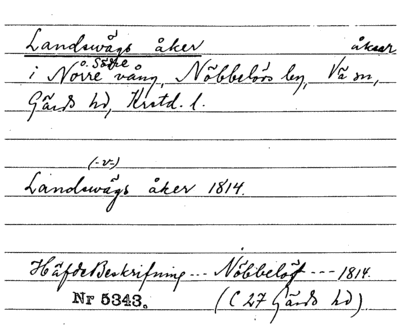 Landswågs åker åkrar
o. Söfre
i Norre vång, Nöbbelövs by, Vä sn,
Gärds hd, Krstd. l.
(-v-)
Landswågs åker 1814.
HäfdeBeskrifning --- Nöbbelöf --- 1814.
Nr 5343. (C 27 Gärds hd)